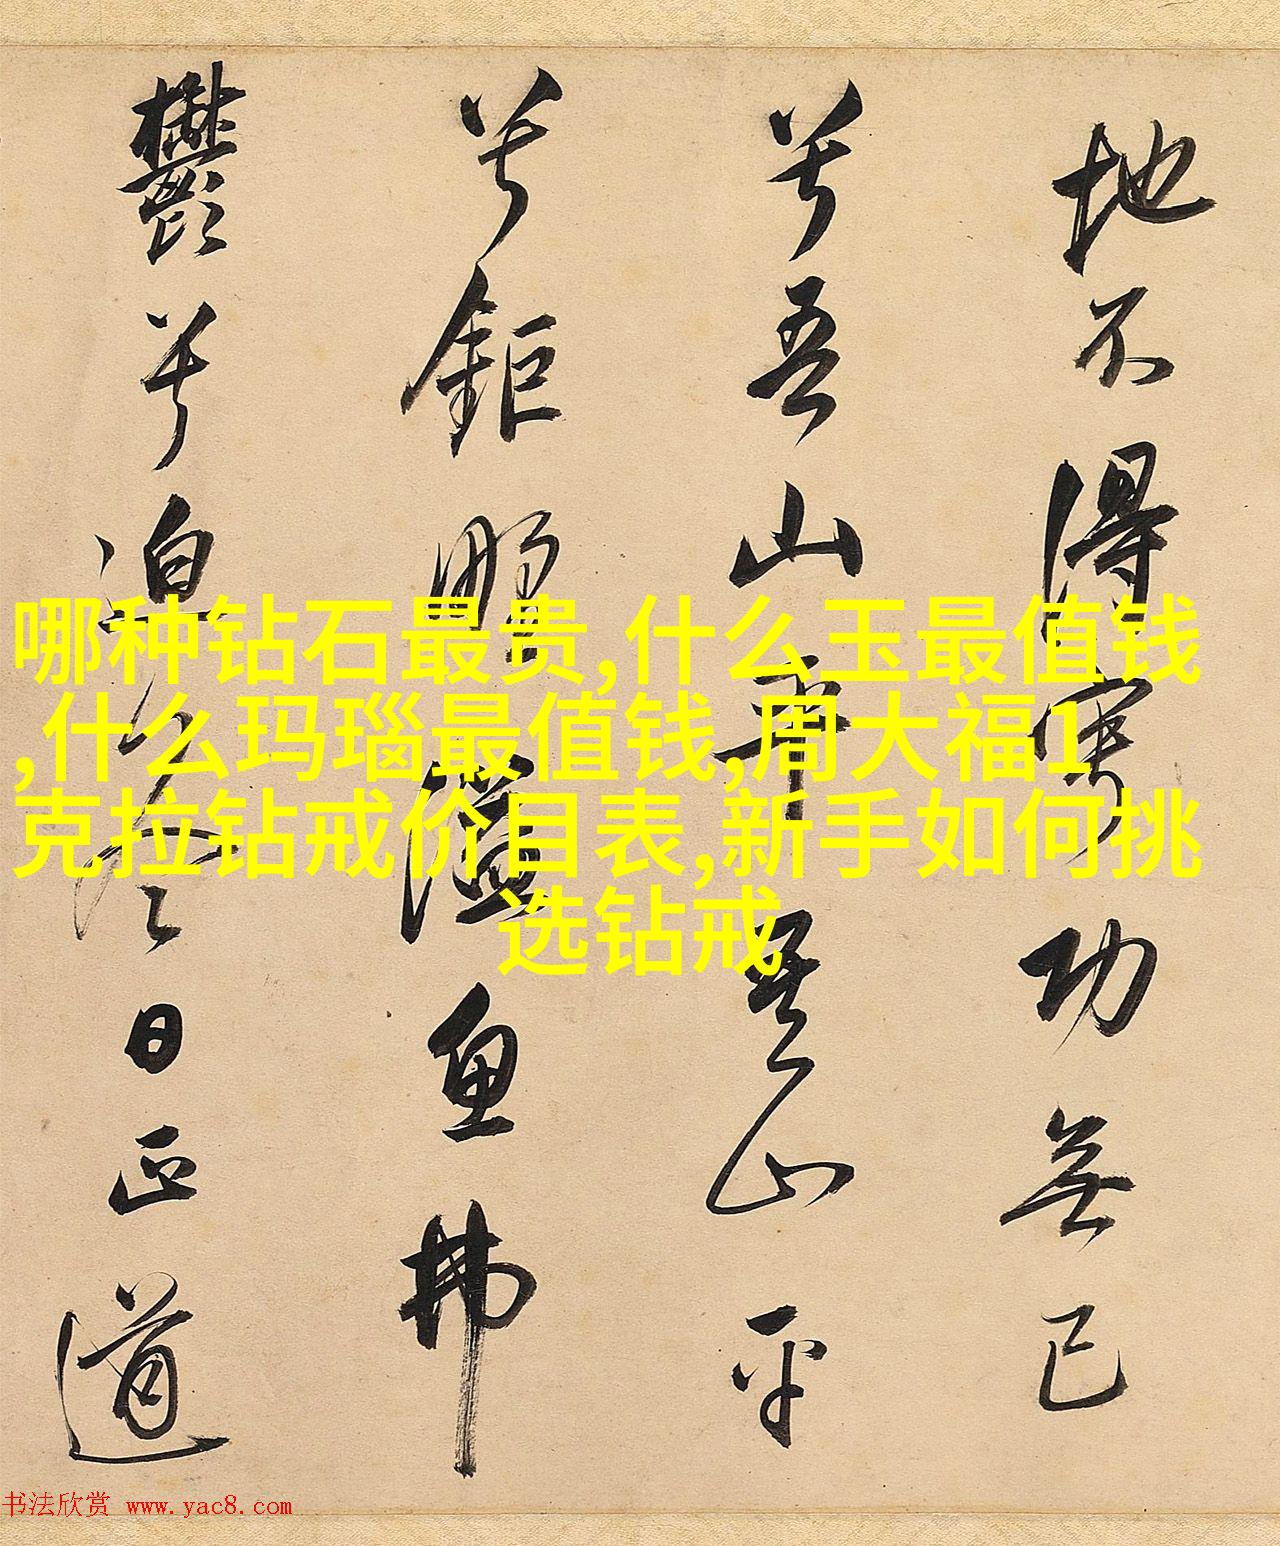 地不得寧功無已
兮吾山平吾山平
兮鉅野溢魚弗
鬱兮迫冬日正道
哪种钻石最贵,什么玉最值钱
,什么玛瑙最值钱,周大福1
克拉钻戒价目表,新手如何挑
选钻戒
书法欣赏 www.yac8.com